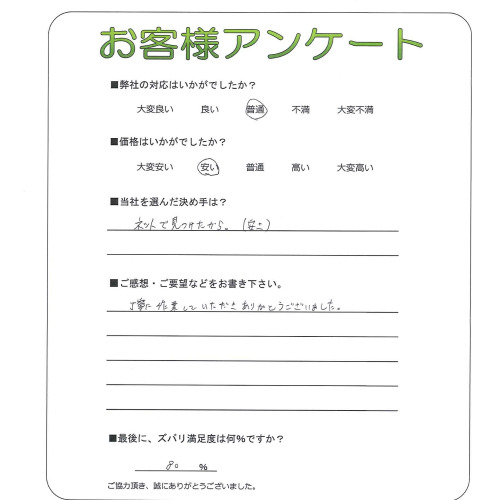 お客様アンケート
■弊社の対応はいかがでしたか？
大変良い 良い 普通 不満 大変不満
■価格はいかがでしたか？
大変安い 安い 普通 高い 大変高い
■当社を選んだ決め手は？
ネットで見つけたから。(安さ)
■ご感想・ご要望などをお書き下さい。
丁寧に作業していただきありがとうございました。
■最後に、ズバリ満足度は何%ですか？
80 %
ご協力頂き、誠にありがとうございました。